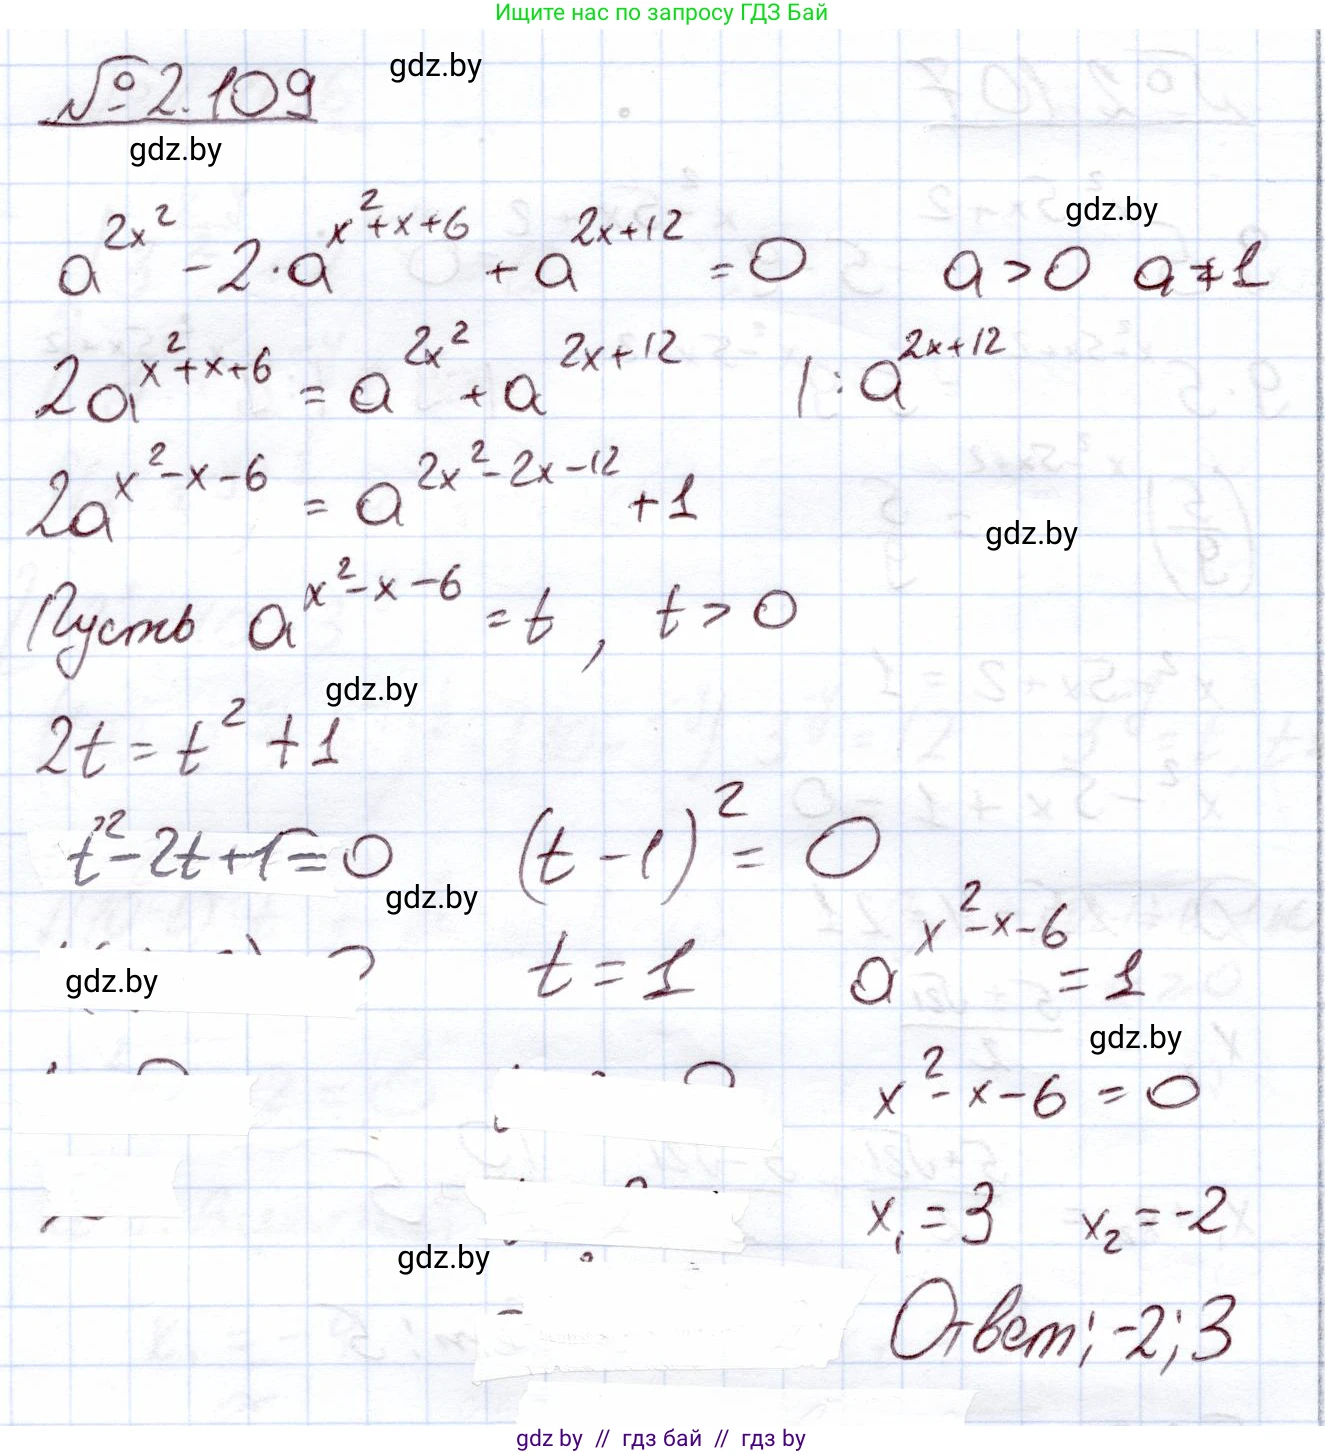 Ищите нас по запросу ГДЗ Бай
№2.109
gdz.by
gdz.by
gdz.by
a^{2x^2} - 2·a^{x^2+x+6} + a^{2x+12} = 0   a > 0   a ≠ 1
2a^{x^2+x+6} = a^{2x^2} + a^{2x+12}   | : a^{2x+12}
2a^{x^2-x-6} = a^{2x^2-2x-12} + 1
gdz.by
Пусть a^{x^2-x-6} = t, t > 0
gdz.by
2t = t^2 + 1
t^2 - 2t + 1 = 0   (t - 1)^2 = 0
gdz.by
t = 1   a^{x^2-x-6} = 1
gdz.by
gdz.by
x^2 - x - 6 = 0
x_1 = 3   x_2 = -2
gdz.by
Ответ: -2; 3
gdz by // гдз бай // гдз by